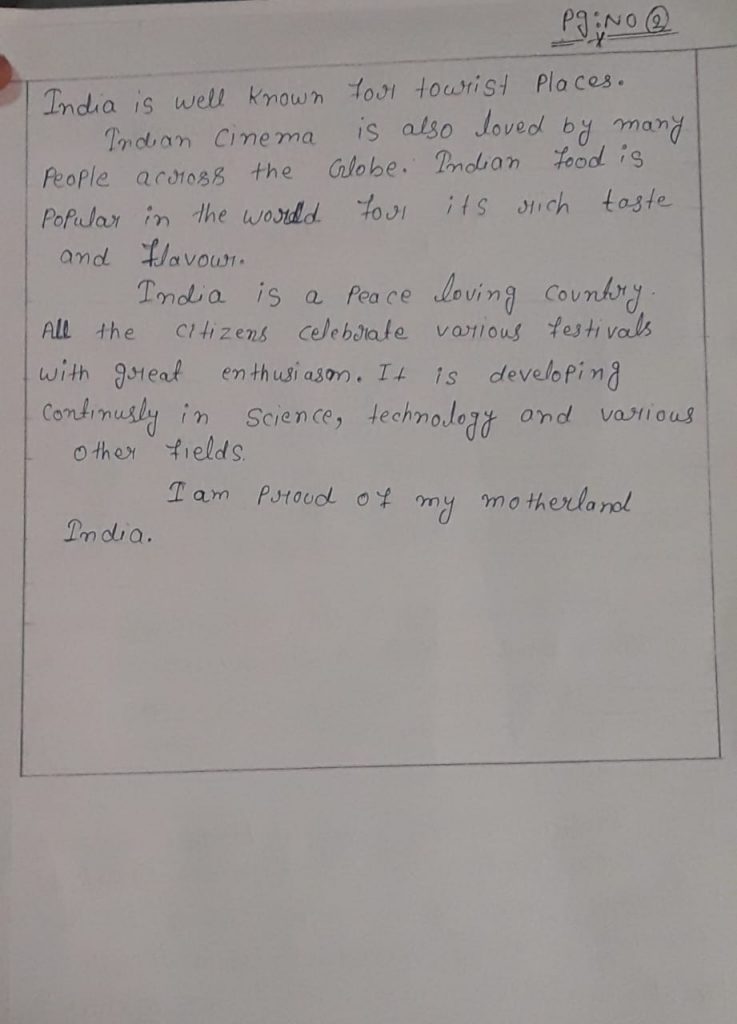 Pg:No 2
India is well known for tourist places.
Indian Cinema is also loved by many
People across the Globe. Indian food is
Popular in the world for its rich taste
and flavour.
India is a Peace loving country.
All the citizens celebrate various festivals
with great enthusiasm. It is developing
Continusly in science, technology and various
other fields.
I am Proud of my motherland
India.